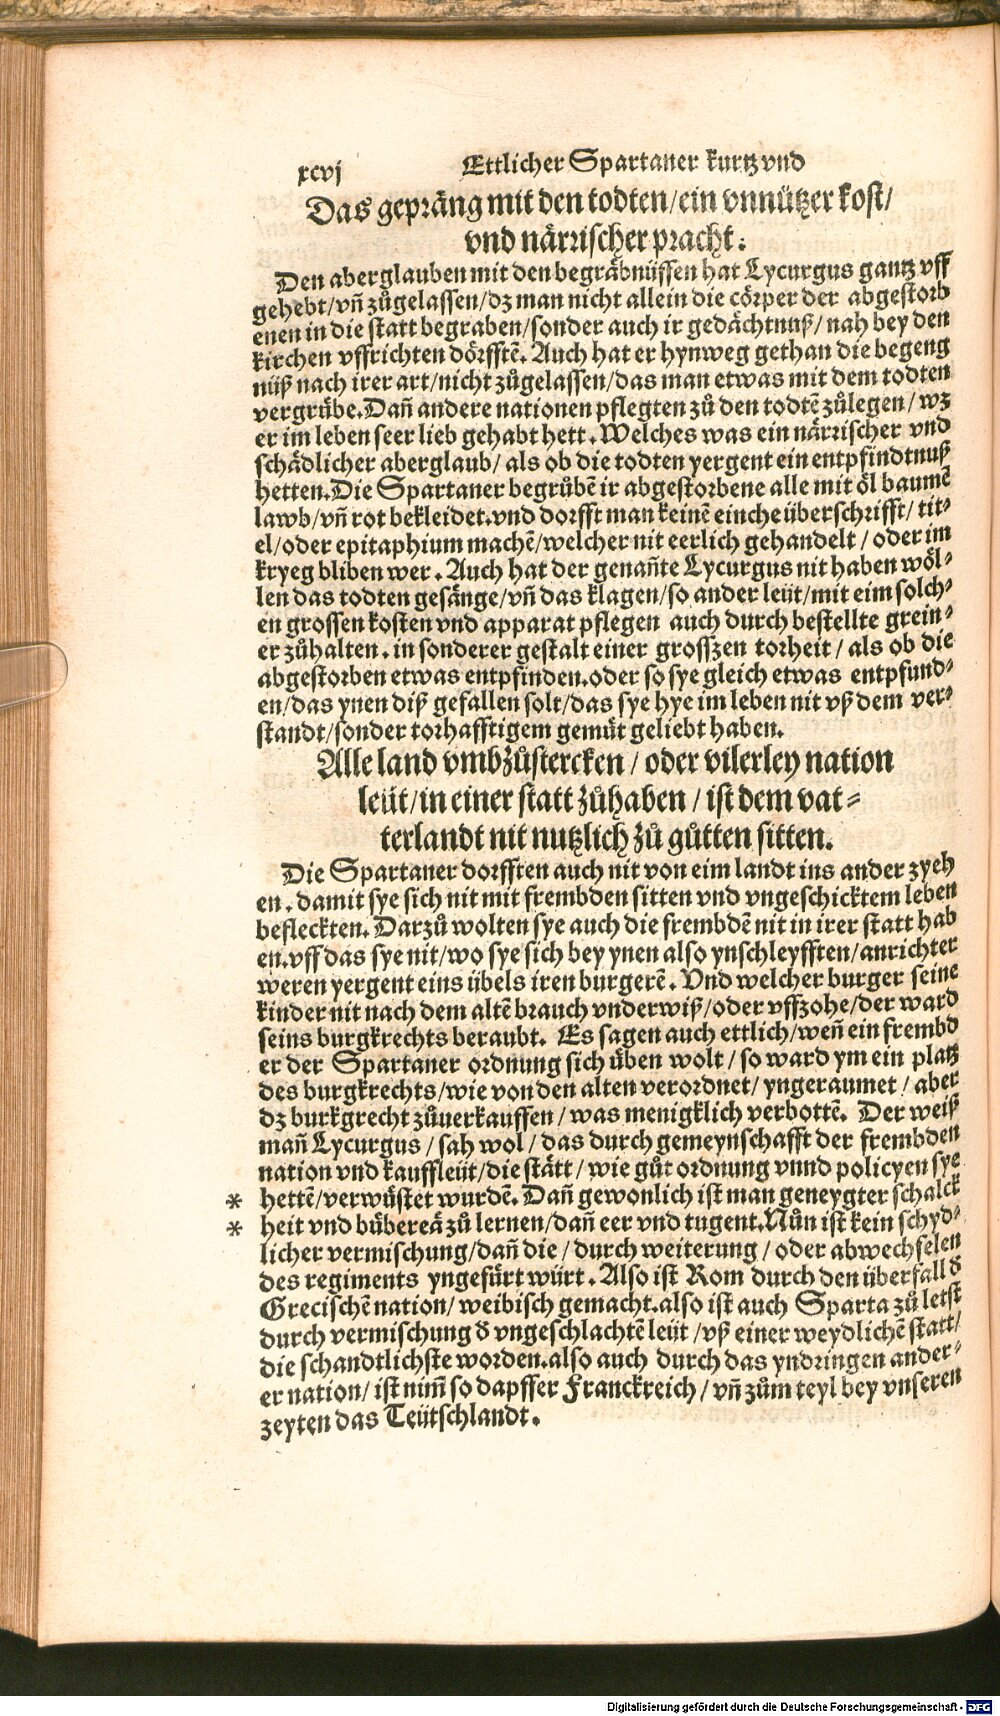 xcvj Ettlicher Spartaner kurtz vnd
Das gepräng mit den todten/ein vnnützer kost/
vnd närrischer pracht:
Den aberglauben mit den begräbnüssen hat Lycurgus gantz vff
gehebt/vñ zůgelassen/dz man nicht allein die cörper der abgestorb
enen in die statt begraben/sonder auch ir gedächtnuß/nah bey den
kirchen vffrichten dörfftẽ. Auch hat er hynweg gethan die begeng
nüß nach irer art/nicht zůgelassen/das man etwas mit dem todten
vergrübe. Dañ andere nationen pflegten zů den todtẽ zůlegen/wz
er im leben seer lieb gehabt hett. Welches was ein närrischer vnd
schädlicher aberglaub/als ob die todten yergent ein entpfindtnuß
hetten. Die Spartaner begrůbẽ ir abgestorbene alle mit öl baumẽ
lawb/vñ rot bekleidet. vnd dorfft man keinẽ einche überschrifft/tit⸗
el/oder epitaphium machẽ/welcher nit eerlich gehandelt/oder im
kryeg bliben wer. Auch hat der genañte Lycurgus nit haben wöl⸗
len das todten gesänge/vñ das klagen/so ander leüt/mit eim solch⸗
en grossen kosten vnd apparat pflegen auch durch bestellte grein⸗
er zůhalten. in sonderer gestalt einer grosszen torheit/als ob die
abgestorben etwas entpfinden. oder so sye gleich etwas entpfund⸗
en/das ynen diß gefallen solt/das sye hye im leben nit vß dem ver⸗
standt/sonder torhafftigem gemüt geliebt haben.
Alle land vmbzůstercken/oder vilerley nation
leüt/in einer statt zůhaben/ist dem vat⸗
terlandt nit nutzlich zů gůtten sitten.
Die Spartaner dorfften auch nit von eim landt ins ander zyeh
en. damit sye sich nit mit frembden sitten vnd vngeschicktem leben
befleckten. Darzů wolten sye auch die frembdẽ nit in irer statt hab
en. vff das sye nit/wo sye sich bey ynen also ynschleyfften/anrichter
weren yergent eins übels iren burgerẽ. Vnd welcher burger seine
kinder nit nach dem altẽ brauch vnderwiß/oder vffzohe/der ward
seins burgkrechts beraubt. Es sagen auch ettlich/weñ ein frembd
er der Spartaner ordnung sich üben wolt/so ward ym ein platz
des burgkrechts/wie von den alten verordnet/yngeraumet/aber
dz burkgrecht zůuerkauffen/was menigklich verbottẽ. Der weiß
mañ Lycurgus/sah wol/das durch gemeynschafft der frembden
nation vnd kauffleüt/die stätt/wie gůt ordnung vnnd policyen sye
* hettẽ/verwüstet wurdẽ. Dañ gewonlich ist man geneygter schalck
* heit vnd bübereä zů lernen/dañ eer vnd tugent. Nůn ist kein schyd⸗
licher vermischung/dañ die/durch weiterung/oder abwechselen
des regiments yngefürt würt. Also ist Rom durch den überfall ð
Grecischẽ nation/weibisch gemacht. also ist auch Sparta zů letst
durch vermischung ð vngeschlachtẽ leüt/vß einer weydlichẽ statt/
die schandtlichste worden. also auch durch das yndringen ander⸗
er nation/ist nim̃ so dapffer Franckreich/vñ zům teyl bey vnseren
zeyten das Teütschlandt.
Digitalisierung gefördert durch die Deutsche Forschungsgemeinschaft - DFG